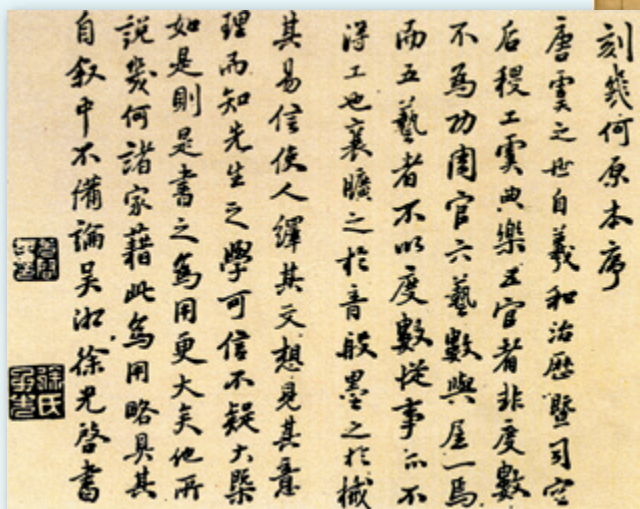 刻幾何原本序
唐虞之世自羲和治歷暨司空
后稷工虞典樂五官者非度數
不為功周官六藝數與居一焉
而五藝者不以度數從事亦不
得工也襄曠之於音般墨之於械
其易信使人繹其文想見其意
理而知先生之學可信不疑大槩
如是則是書之為用更大矣他所
說幾何諸家藉此為用略具其
自叙中不備論吳淞徐光啓書